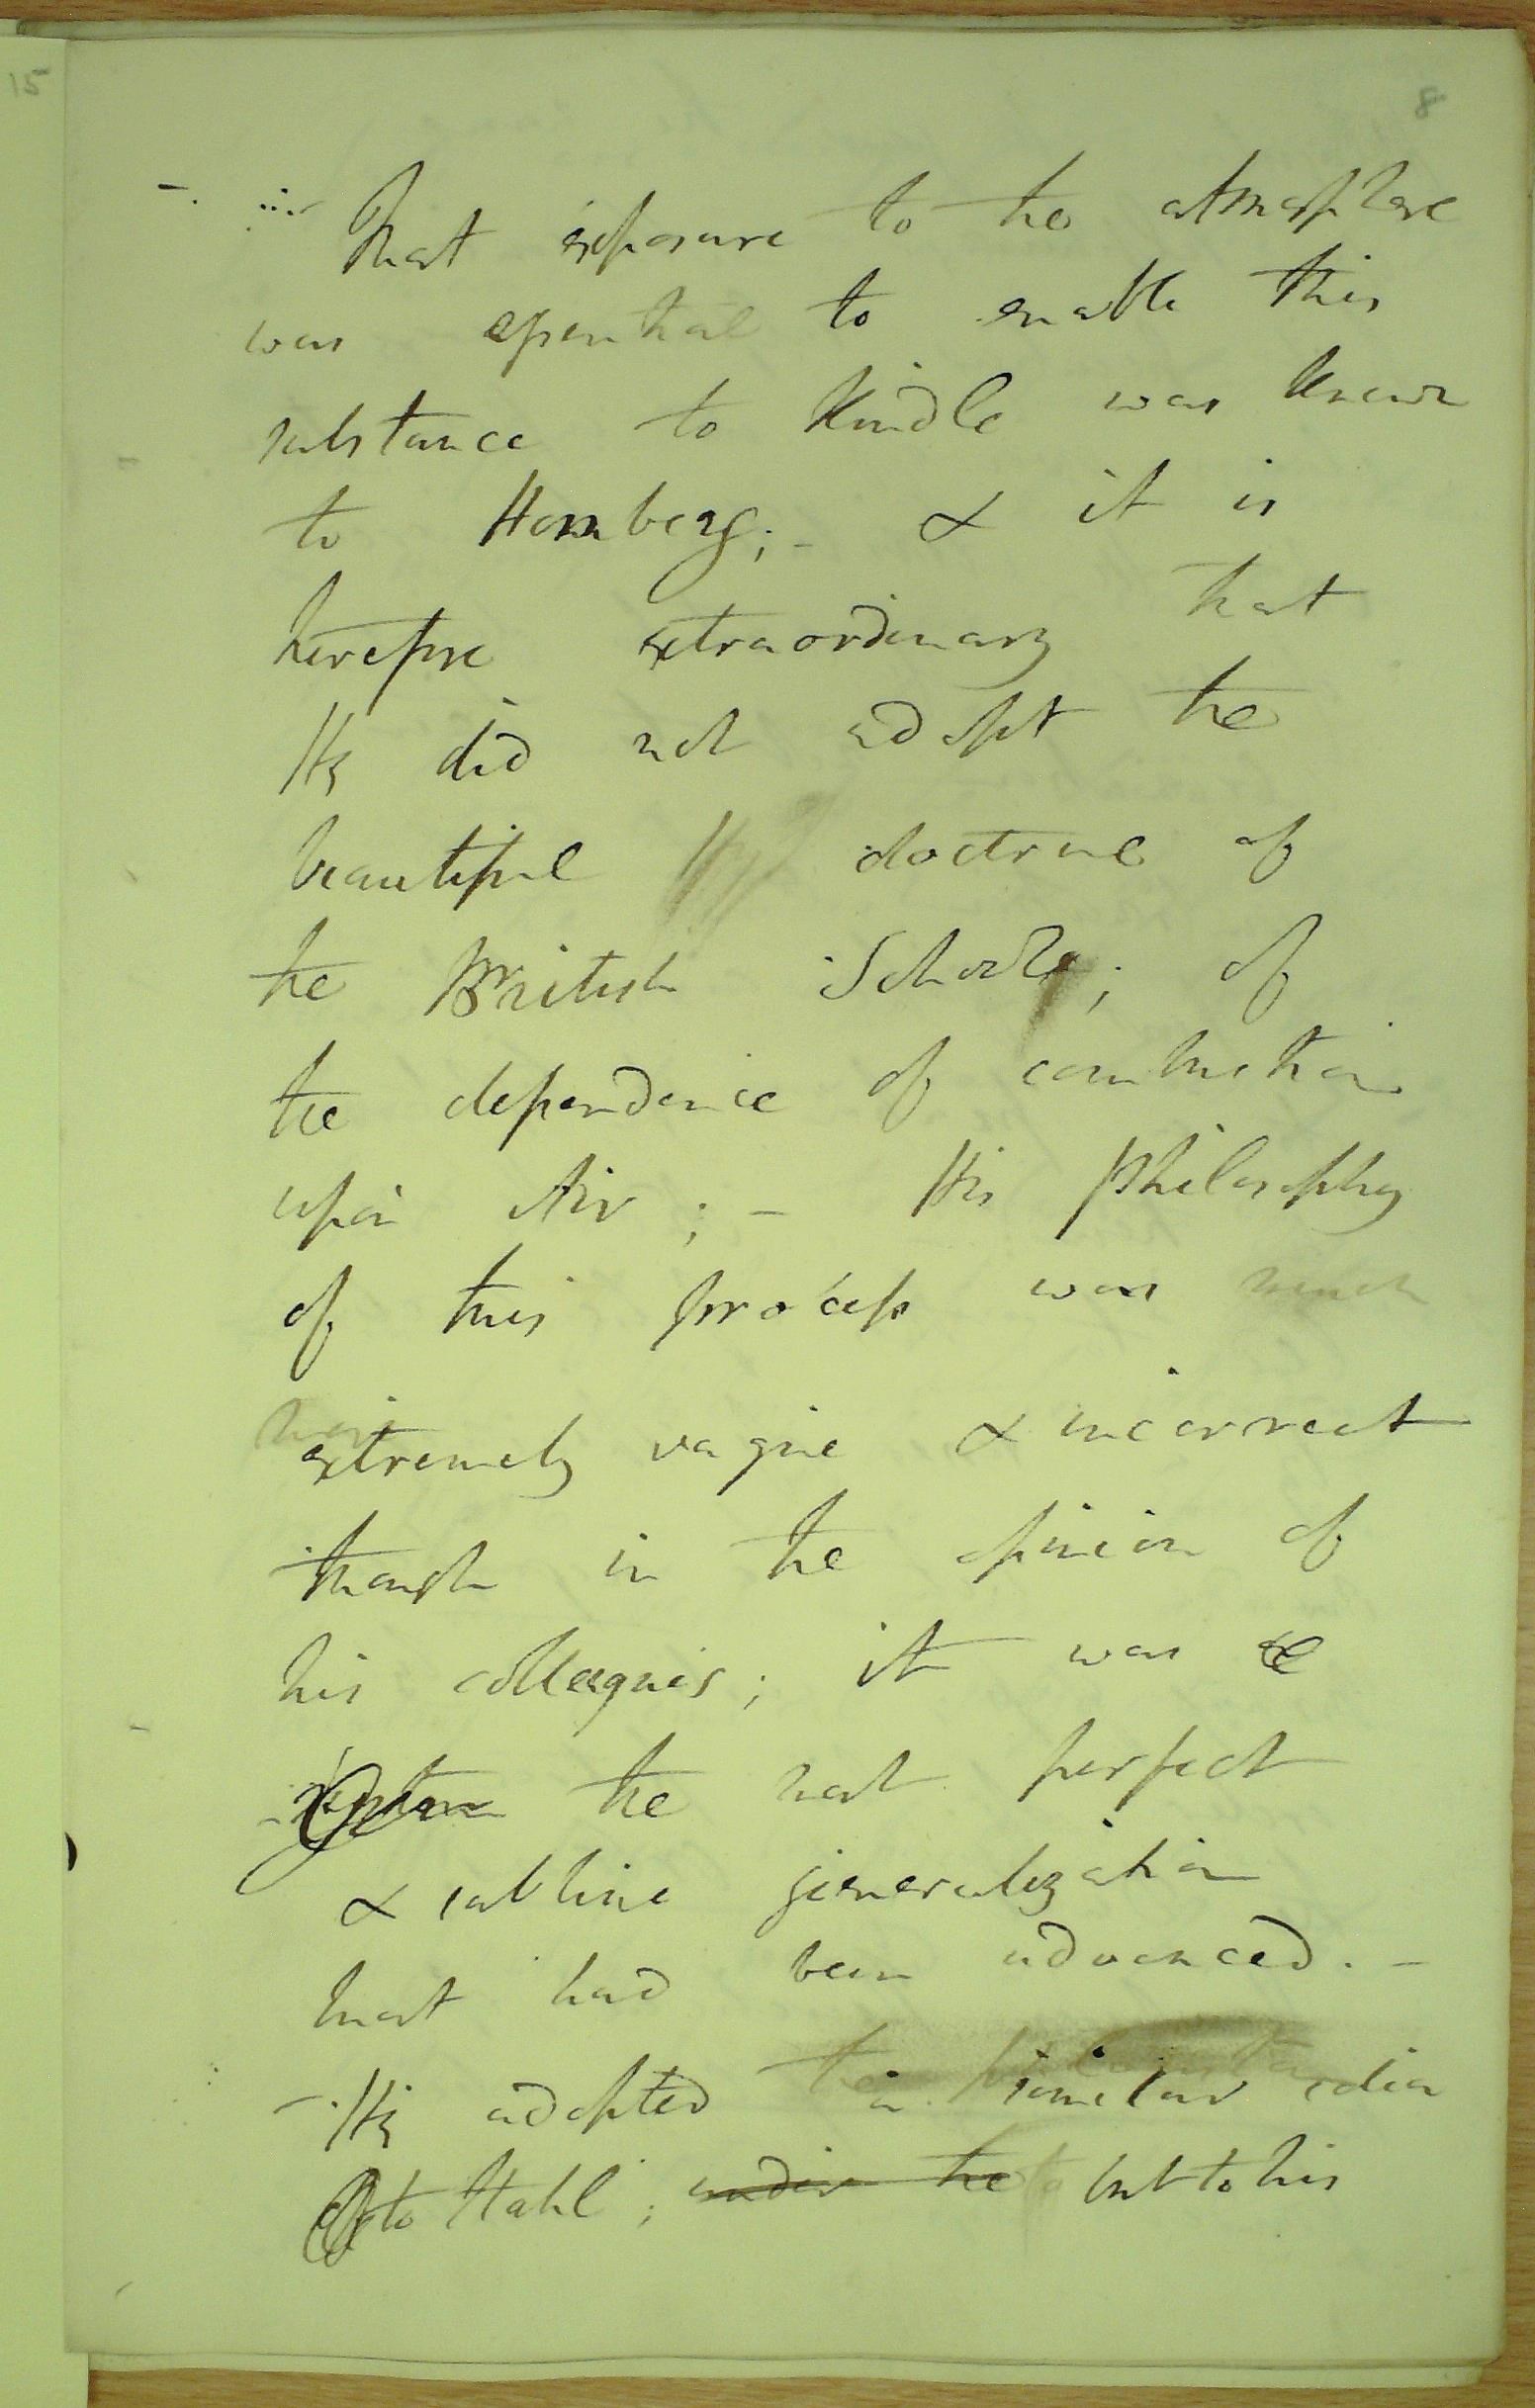 15
8
That exposure to the atmosphere
was essential to enable this
substance to kindle was known
to Homberg; - & it is
therefore extraordinary that
He did not adopt the
beautiful doctrine of
the British School; of
the dependence of combustion
upon Air; - His Philosophy
of this process was much
extremely vague & incorrect
though in the opinion of
his colleagues; it was
the most perfect
& sublime generalization
that had been advanced. -
- He adopted a similar idea
to Stahl; under the but to his